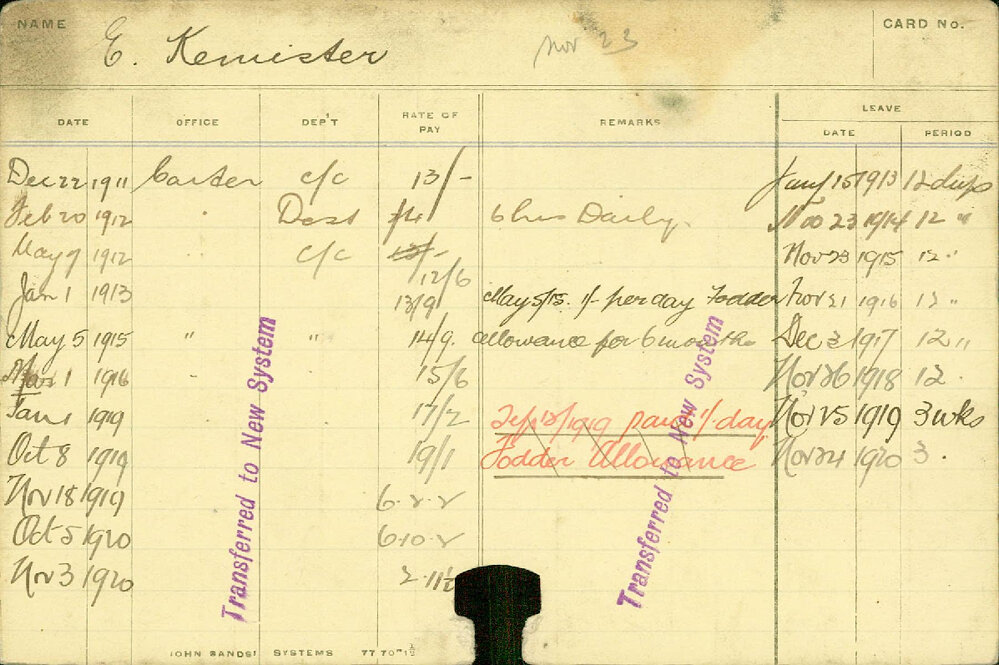 NAME
E. Kemister
Nov 23
CARD No.
DATE OFFICE DEP'T RATE OF PAY REMARKS LEAVE
DATE PERIOD
Dec 22 1911 Carter C/C 13/- Jany 15 1913 12 days
Feb 20 1912 " Dest 6 hrs Daily. Nov 23 1914 12 "
May 7 1912 C/C Nov 23 1915 12 "
12/6
Jan 1 1913 13/9 May 5/15. 1/- per day Fodder Nov 21 1916 12 "
May 5 1915 " " 14/9. allowance for 6 months Dec 3 1917 12 "
Mar 1 1916 15/6 Nov 26 1918 12
Jan 1 1919 17/2 Sep 12/1919 paid 1/ day Nov 25 1919 3 wks
Oct 8 1919 19/1 Fodder Allowance Nov 24 1920 3 "
Nov 18 1919 6.2.2
Oct 5 1920 6.10.2
Nov 3 1920 2.11½
Transferred to New System
Transferred to New System
JOHN SANDS' SYSTEMS